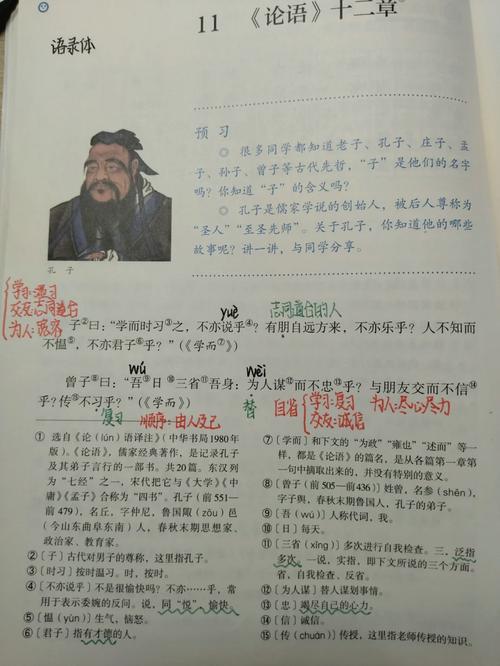 11 《论语》十二章
语录体
预习
○ 很多同学都知道老子、孔子、庄子、孟
子、孙子、曾子等古代先哲，“子”是他们的名字
吗？你知道“子”的含义吗？
○ 孔子是儒家学说的创始人，被后人尊称为
“圣人”“至圣先师”。关于孔子，你知道他的哪些
故事呢？讲一讲，与同学分享。
孔 子
学习:复习
交友:志同道合
为人:宽容
yuè
志同道合的人
子②曰：“学而时习③之，不亦说乎④？有朋自远方来，不亦乐乎？人不知而
不愠⑤，不亦君子⑥乎？”（《学而⑦》）
wú
wèi
曾子⑧曰：“吾⑨日⑩三省⑪吾身：为人谋⑫而不忠⑬乎？与朋友交而不信⑭
乎？传⑮不习乎？”（《学而》）
复习
顺序:由人及己
替
自省
学习:复习
交友:诚信
为人:尽心尽力
① 选自《论（lún）语译注》（中华书局1980年
版）。《论语》，儒家经典著作，是记录孔子
及其弟子言行的一部书。共20篇。东汉列
为“七经”之一，宋代把它与《大学》《中
庸》《孟子》合称为“四书”。孔子（前551—
前479），名丘，字仲尼，鲁国陬（zōu）邑
（今山东曲阜东南）人，春秋末期思想家、
政治家、教育家。
②〔子〕古代对男子的尊称，这里指孔子。
③〔时习〕按时温习。时，按时。
④〔不亦说乎〕不是很愉快吗？不亦……乎，常
用于表示委婉的反问。说，同“悦”，愉快。
⑤〔愠（yùn）〕生气，恼怒。
⑥〔君子〕指有才德的人。
⑦〔学而〕和下文的“为政”“雍也”“述而”等一
样，都是《论语》的篇名，是从各篇第一章第
一句中摘取出来的，并没有特别的意义。
⑧〔曾子（前505—前436）〕姓曾，名参（shēn），
字子舆，春秋末期鲁国人，孔子的弟子。
⑨〔吾（wú）〕人称代词，我。
⑩〔日〕每天。
⑪〔三省（xǐng）〕多次进行自我检查。三，泛指
多次。一说，实指，即下文所说的三个方面。
省，自我检查、反省。
⑫〔为人谋〕替人谋划事情。
⑬〔忠〕竭尽自己的心力。
⑭〔信〕诚信。
⑮〔传（chuán）〕传授，这里指老师传授的知识。